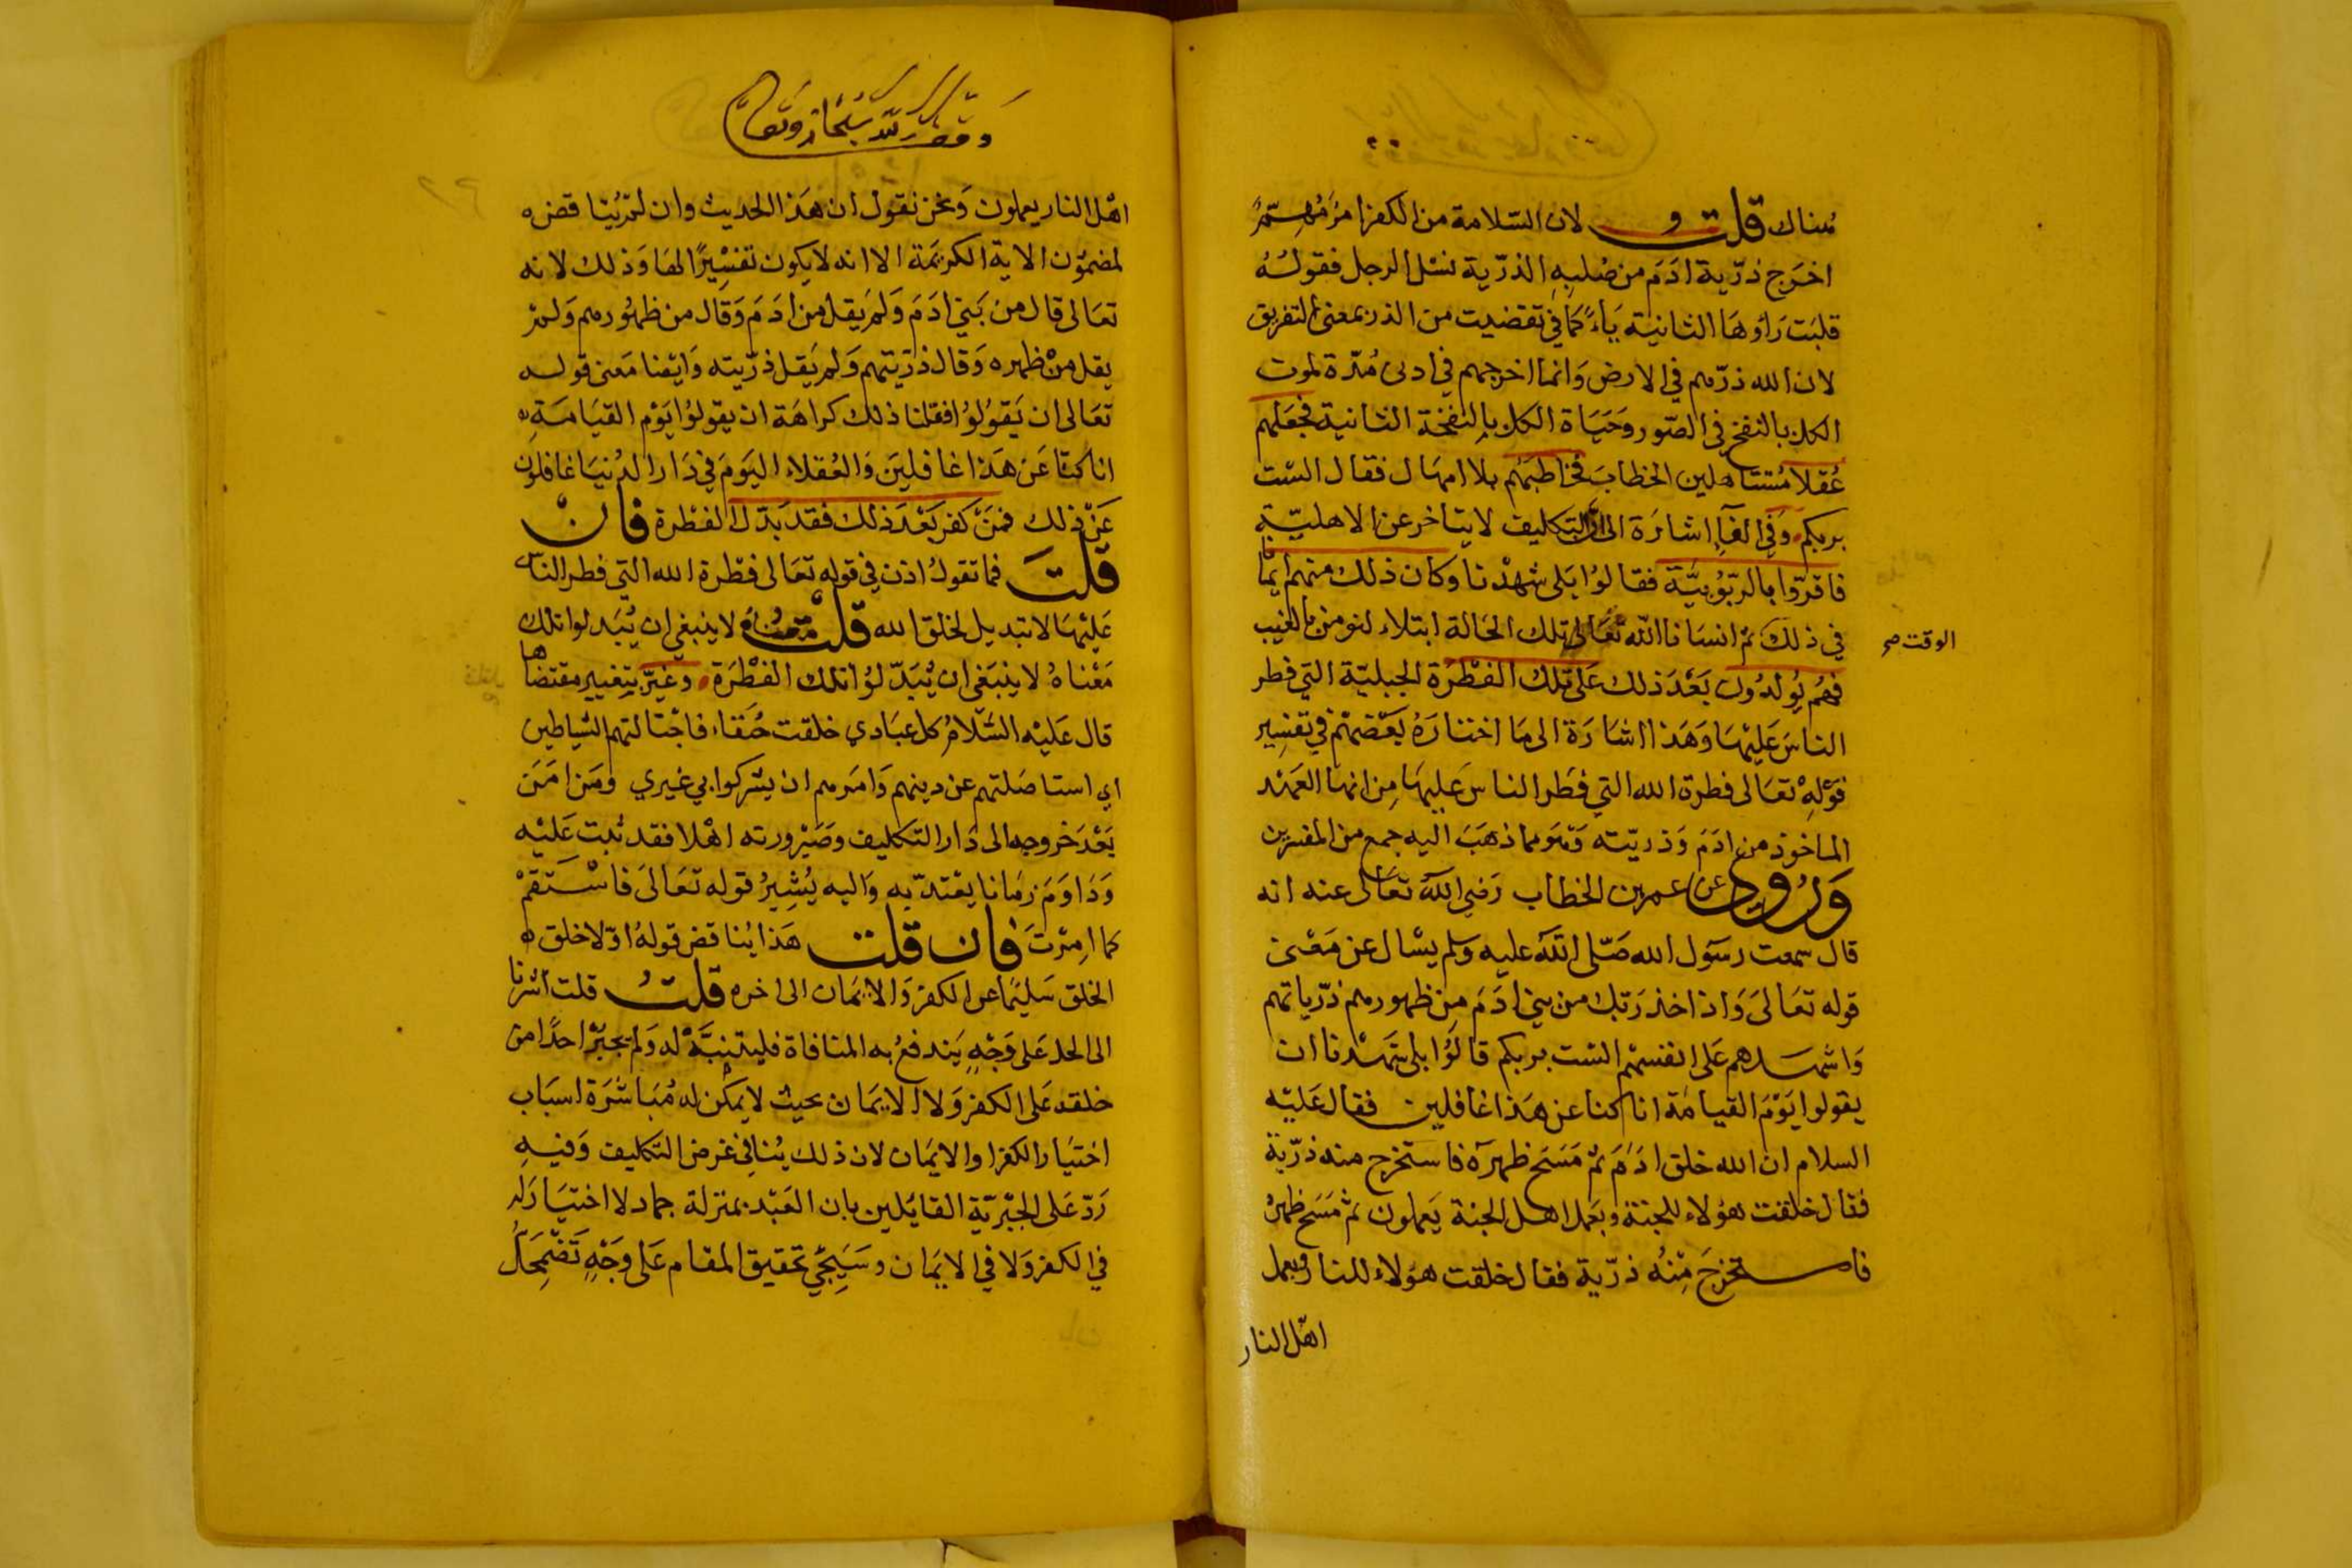 هناك قلت و لان السلامة من الكفر امر مهم ثم
اخرج ذرية ادم من صلبه الذرية نسل الرجل فقوله
قلبت راؤها الثانية ياء كما في تقضيت من الذر بمعنى التفريق
لان الله ذرهم في الارض وانما اخرجهم في ادنى مدة لموت
الكل بالنفخ في الصور وحياة الكل بالنفخة الثانية فجعلهم
عقلا مستاهلين الخطاب فخاطبهم بلا امهال فقال الست
بربكم وفي الفآء اشارة الى ان التكليف لا يتاخر عن الاهلية
فاقروا بالربوبية فقالوا بلى شهدنا وكان ذلك منهم ايمانا
في ذلك ثم انسانا الله تعالى تلك الحالة ابتلاء لنومن بالغيب
الوقت صح
فهم يولدون بعد ذلك على تلك الفطرة الجبلية التي فطر
الناس عليها وهذا اشارة الى ما اختاره بعضهم في تفسير
قوله تعالى فطرة الله التي فطر الناس عليها من انها العهد
الماخوذ من ادم وذريته وهو مما ذهب اليه جمع من المفسرين
وروي عن عمر بن الخطاب رضي الله تعالى عنه انه
قال سمعت رسول الله صلى الله عليه وسلم يسال عن معنى
قوله تعالى واذ اخذ ربك من بني ادم من ظهورهم ذرياتهم
واشهدهم على انفسهم الست بربكم قالوا بلى شهدنا ان
يقولوا يوم القيامة انا كنا عن هذا غافلين فقال عليه
السلام ان الله خلق ادم ثم مسح ظهره فاستخرج منه ذرية
فقال خلقت هؤلاء للجنة وبعمل اهل الجنة يعملون ثم مسح ظهره
فاستخرج منه ذرية فقال خلقت هؤلاء للنار وبعمل
اهل النار
وقف لله سبحانه وتعالى
اهل النار يعملون ونحن نقول ان هذا الحديث وان لم يناقض
لمضمون الاية الكريمة الا انه لا يكون تفسيرا لها وذلك لانه
تعالى قال من بني ادم ولم يقل من ادم وقال من ظهورهم ولم
يقل من ظهره وقال ذريتهم ولم يقل ذريته وايضا معنى قوله
تعالى ان يقولوا فعلنا ذلك كراهة ان يقولوا يوم القيامة
انا كنا عن هذا غافلين والعقلاء اليوم في دار الدنيا غافلون
عن ذلك فمن كفر بعد ذلك فقد بدل الفطرة فان
قلت فما تقول اذن في قوله تعالى فطرة الله التي فطر الناس
عليها لا تبديل لخلق الله قلت معناه لا ينبغي ان يبدلوا تلك
معناه لا ينبغي ان يبدلوا تلك الفطرة وغير بتغيير مقتضاها
قال عليه السلام كل عبادي خلقت حنفاء فاجتالتهم الشياطين
اي استاصلتهم عن دينهم وامرهم ان يشركوا بي غيري ومن امن
بعد خروجه الى دار التكليف وصيرورته اهلا فقد ثبت عليه
وداوم زمانا يعتد به واليه يشير قوله تعالى فاستقم
كما امرت فان قلت هذا يناقض قوله اولا خلق
الخلق سليما عن الكفر والايمان الى اخره قلت قلت اشرنا
الى الحل على وجه يندفع به المنافاة فليتنبه له ولم يجبر احدا من
خلقه على الكفر ولا الايمان بحيث لا يمكن له مباشرة اسباب
اختيار الكفر او الايمان لان ذلك ينافي غرض التكليف وفيه
رد على الجبرية القائلين بان العبد بمنزلة جماد لا اختيار له
في الكفر ولا في الايمان وسيجئ تحقيق المقام على وجه تضمحل